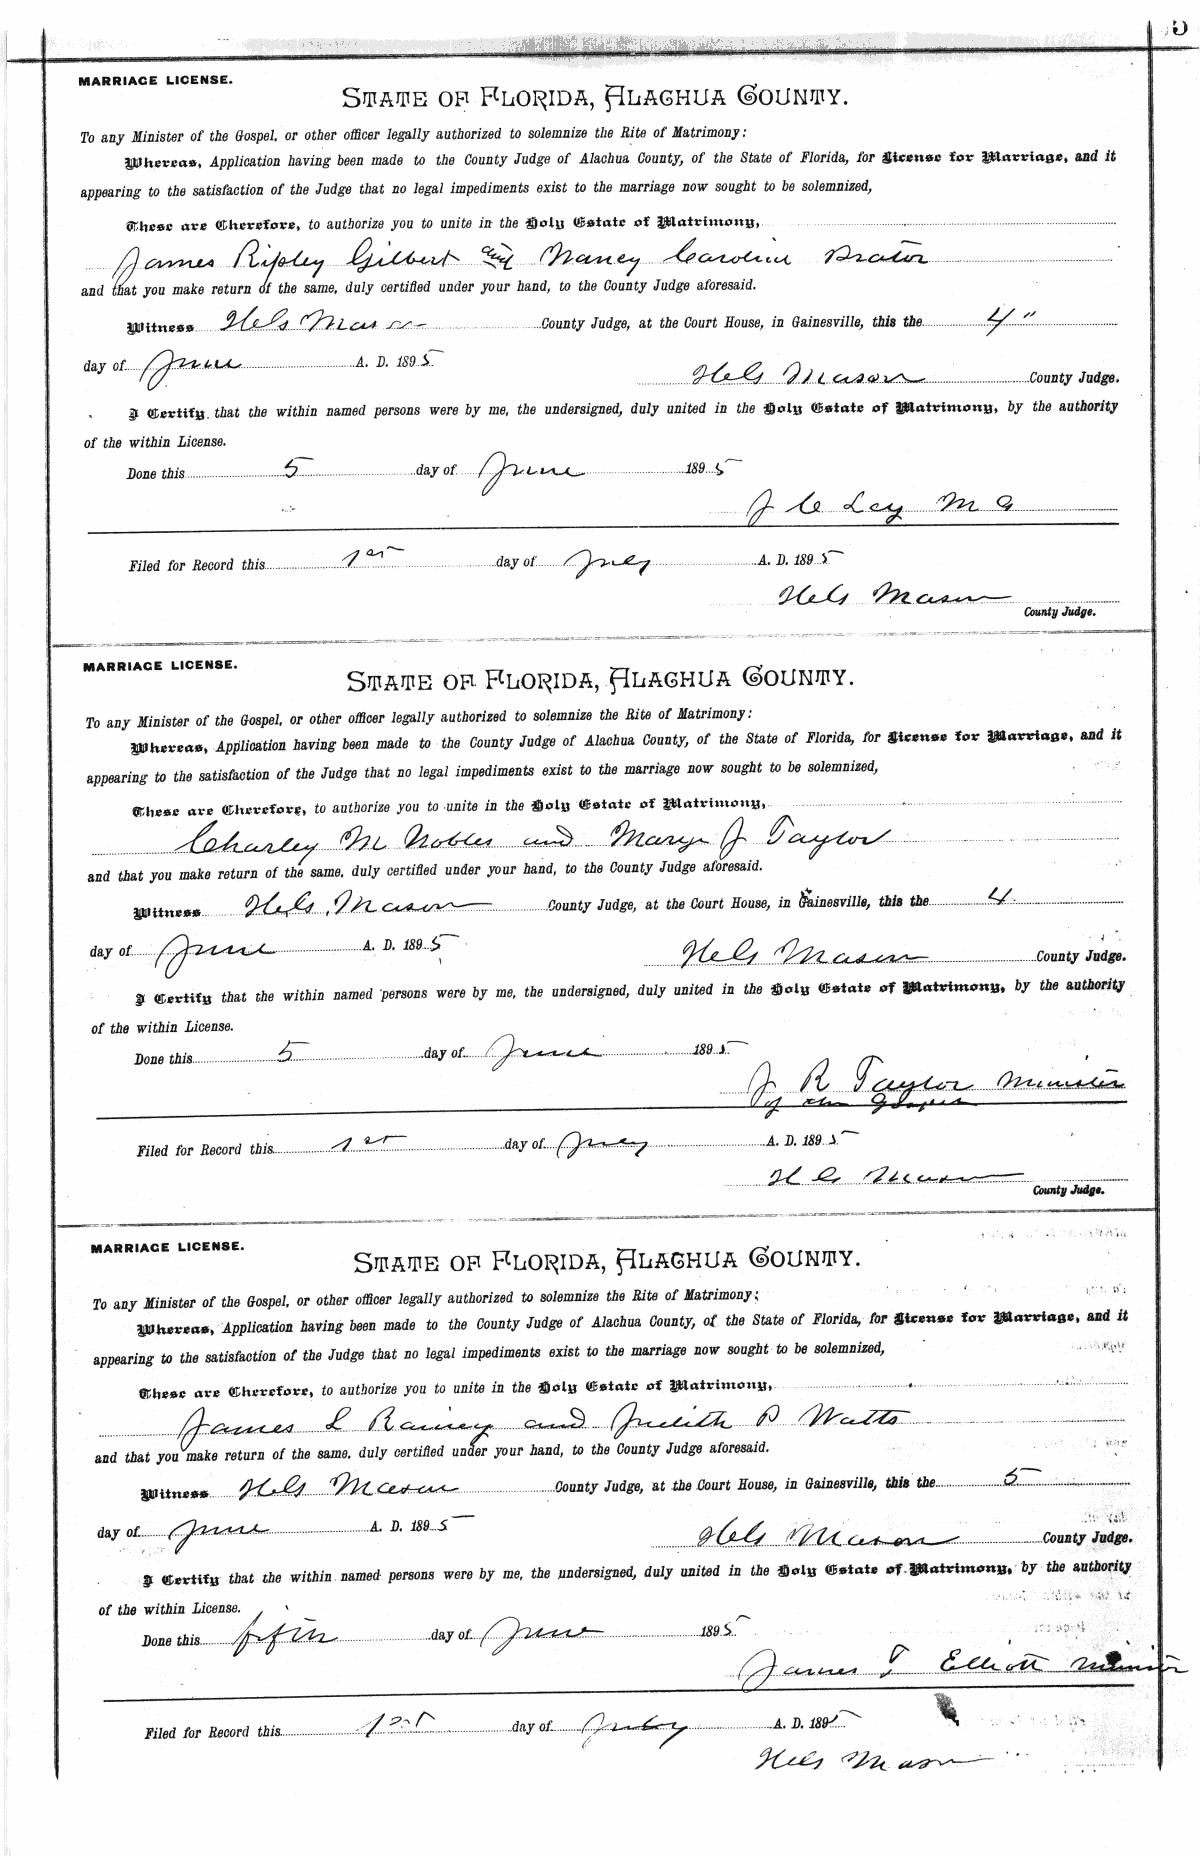 5
MARRIAGE LICENSE.
STATE OF FLORIDA, ALACHUA COUNTY.
To any Minister of the Gospel, or other officer legally authorized to solemnize the Rite of Matrimony:
Whereas, Application having been made to the County Judge of Alachua County, of the State of Florida, for License for Marriage, and it
appearing to the satisfaction of the Judge that no legal impediments exist to the marriage now sought to be solemnized,
These are Therefore, to authorize you to unite in the Holy Estate of Matrimony,
James Ripley Gilbert and Nancy Caroline Prator
and that you make return of the same, duly certified under your hand, to the County Judge aforesaid.
Witness HG Mason County Judge, at the Court House, in Gainesville, this the 4"
day of June A. D. 1895
HG Mason County Judge.
I Certify that the within named persons were by me, the undersigned, duly united in the Holy Estate of Matrimony, by the authority
of the within License.
Done this 5 day of June 1895
J C Ley M G
Filed for Record this 1st day of July A. D. 1895
HG Mason
County Judge.
MARRIAGE LICENSE.
STATE OF FLORIDA, ALACHUA COUNTY.
To any Minister of the Gospel, or other officer legally authorized to solemnize the Rite of Matrimony:
Whereas, Application having been made to the County Judge of Alachua County, of the State of Florida, for License for Marriage, and it
appearing to the satisfaction of the Judge that no legal impediments exist to the marriage now sought to be solemnized,
These are Therefore, to authorize you to unite in the Holy Estate of Matrimony,
Charley M Nobles and Mary J Taylor
and that you make return of the same, duly certified under your hand, to the County Judge aforesaid.
Witness HG Mason County Judge, at the Court House, in Gainesville, this the 4
day of June A. D. 1895
HG Mason County Judge.
I Certify that the within named persons were by me, the undersigned, duly united in the Holy Estate of Matrimony, by the authority
of the within License.
Done this 5 day of June 1895
J R Taylor Minister
of the Gospel
Filed for Record this 1st day of July A. D. 1895
HG Mason
County Judge.
MARRIAGE LICENSE.
STATE OF FLORIDA, ALACHUA COUNTY.
To any Minister of the Gospel, or other officer legally authorized to solemnize the Rite of Matrimony:
Whereas, Application having been made to the County Judge of Alachua County, of the State of Florida, for License for Marriage, and it
appearing to the satisfaction of the Judge that no legal impediments exist to the marriage now sought to be solemnized,
These are Therefore, to authorize you to unite in the Holy Estate of Matrimony,
James L Rainey and Judith P Watts
and that you make return of the same, duly certified under your hand, to the County Judge aforesaid.
Witness HG Mason County Judge, at the Court House, in Gainesville, this the 5
day of June A. D. 1895
HG Mason County Judge.
I Certify that the within named persons were by me, the undersigned, duly united in the Holy Estate of Matrimony, by the authority
of the within License.
Done this fifth day of June 1895
James T Elliott Minister
Filed for Record this 1st day of July A. D. 1895
HG Mason